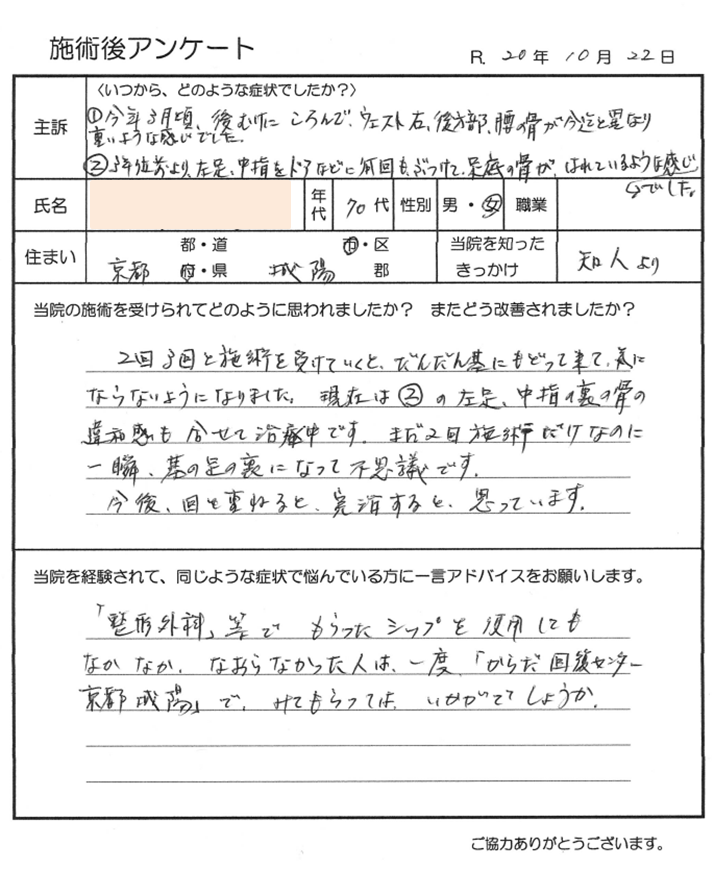 施術後アンケート
R. 20年 10月 22日
主訴
〈いつから、どのような症状でしたか?〉
①今年3月頃、後むけに ころんで、ウェスト右、後方部、腰の骨が今迄と異なり
重いような感じでした。
②3年位前より、左足、中指をドアなどに何回も、ぶつけて、足底の骨が、はれているような感じ
でした。
氏名
年代 70代 性別 男・女 職業
住まい 京都 都・道府・県 城陽 市・区郡 当院を知ったきっかけ 知人より
当院の施術を受けられてどのように思われましたか? またどう改善されましたか?
2回3回と施術を受けていくと、だんだん基にもどって来て、気に
ならないようになりました。 現在は②の左足、中指の裏の骨の
違和感も合せて治療中です。まだ2回施術だけなのに
一瞬、基の足の裏になって不思議です。
今後、回を重ねると、完治すると、思っています。
当院を経験されて、同じような症状で悩んでいる方に一言アドバイスをお願いします。
「整形外科」等で もらったシップを使用しても
なかなか、なおらなかった人は、一度、「からだ回復センター
京都城陽」で、みてもらっては、いかがでしょうか。
ご協力ありがとうございます。